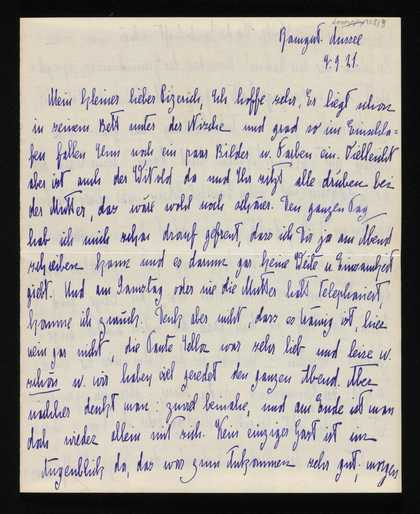 Baingut. Aussee
9.9.21.
Mein kleiner lieber Bizerich, Ich hoffe sehr, Er liegt schon
in seinem Bett unter der Nische und grad so im Einschla-
fen fallen Ihm noch ein paar Bilder u. Farben ein. Vielleicht
aber ist auch der Witold da und Ihr sitzt alle drüben bei
der Mutter, das wäre wohl noch schöner. Den ganzen Tag
hab ich mich schon drauf gefreut, dass ich Dir ja am Abend
schreiben kann und es dann gar keine Weite u. Einsamkeit
giebt. Und am Samstag oder wie die Mutter halt telephoniert,
komme ich zurück. Denk aber nicht, dass es traurig ist, hier
nein gar nicht, die Tante Jella war sehr lieb und leise u.
schön u. wir haben viel geredet den ganzen Abend. Aber
nachher denkt man: zuviel beinahe, und am Ende ist man
doch wieder allein mit sich. Kein einziger Gast ist im
Augenblick da, das war zum Ankommen sehr gut, morgen